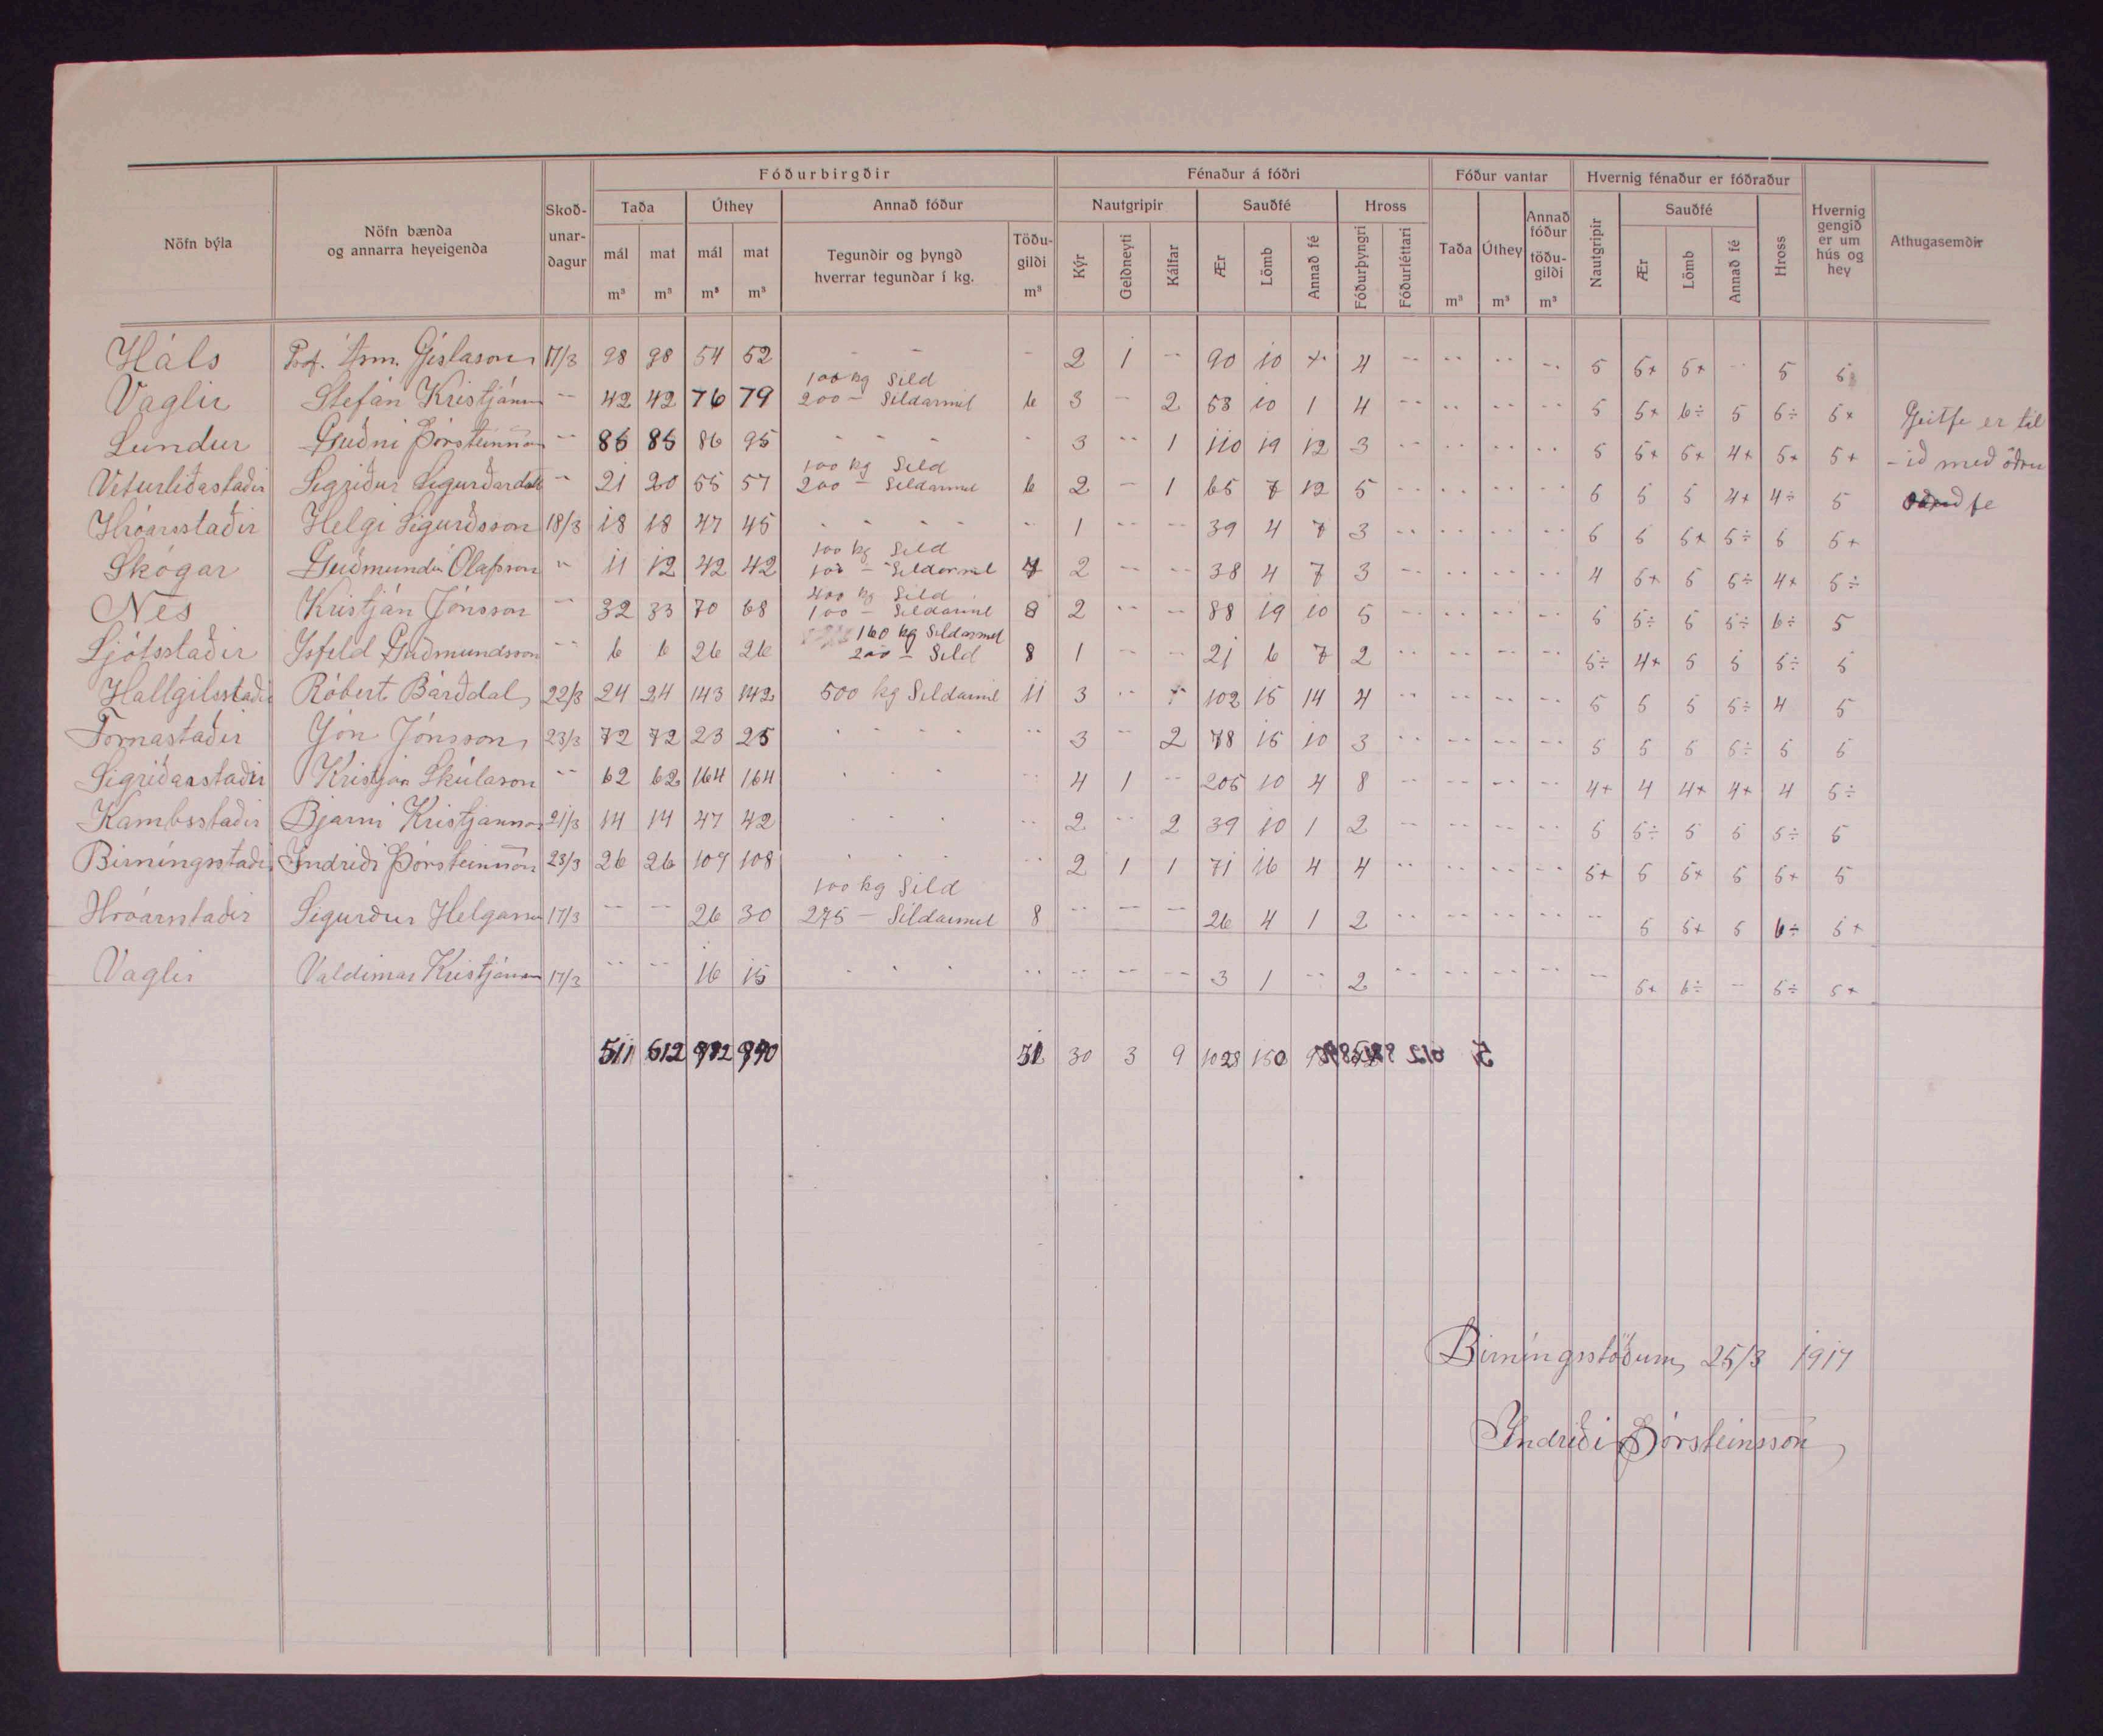 Nöfn býla | Nöfn bænda og annarra heyeigenda | Skoð-unar-dagur | Fóðurbirgðir | Fénaður á fóðri | Fóður vantar | Hvernig fénaður er fóðraður | Hvernig gengið er um hús og hey | Athugasemdir
Taða | Úthey | Annað fóður | Nautgripir | Sauðfé | Hross | Taða | Úthey | Annað fóður töðu-gildi | Nautgripir | Sauðfé | Hross
mál | mat | mál | mat | Tegundir og þyngd hverrar tegundar í kg. | Töðu-gildi | Kýr | Geldneyti | Kálfar | Ær | Lömb | Annað fé | Fóðurþyngri | Fóðurléttari | Ær | Lömb | Annað fé
m³ | m³ | m³ | m³ | m³ | m³ | m³ | m³
Háls | Ásm. Gíslason | 17/3 | 98 | 98 | 54 | 52 | - - | - | 2 | 1 | - | 90 | 10 | 4 | -- | -- | -- | -- | 5 | 5+ | 5+ | - | 5 | 5
100 kg Síld
Vaglir | Stefán Kristjánsson | -- | 42 | 42 | 76 | 79 | 200 - Síldarmél | 6 | 3 | - | 2 | 53 | 10 | 1 | 4 | -- | -- | -- | -- | 5 | 5+ | 6÷ | 5 | 6÷ | 5+ | Geitfe er til
Lundur | Guðni Þórsteinnson | -- | 85 | 85 | 86 | 95 | - - - | - | 3 | -- | 1 | 110 | 19 | 12 | 3 | -- | -- | -- | -- | 5 | 5+ | 5+ | 4+ | 5+ | 5+ | -ið með öðru
100 kg Síld
Veturliðastaðir | Sigríður Sigurðardótt | -- | 21 | 20 | 55 | 57 | 200 - Síldarmél | 6 | 2 | - | 1 | 65 | 7 | 12 | 5 | -- | -- | -- | -- | 6 | 5 | 5 | 4+ | 4÷ | 5 | fe
Hróarsstaðir | Helgi Sigurðsson | 18/3 | 18 | 18 | 47 | 45 | - - - - | -- | 1 | -- | -- | 39 | 4 | 7 | 3 | -- | -- | -- | -- | 6 | 5 | 5+ | 5÷ | 5 | 5+
100 kg Síld
Skógar | Guðmundur Ólafsson | -- | 11 | 12 | 42 | 42 | 100 - Síldarmél | 4 | 2 | -- | -- | 38 | 4 | 7 | 3 | -- | -- | -- | -- | 4 | 5+ | 5 | 5÷ | 4+ | 5÷
400 kg Síld
Nes | Kristján Jónsson | -- | 32 | 33 | 70 | 68 | 100 - Síldarmél | 8 | 2 | -- | -- | 88 | 19 | 10 | 5 | -- | -- | -- | -- | 5 | 5÷ | 5 | 5÷ | 6÷ | 5
160 kg Síldarmel
Ljótsstaðir | Ísfeld Guðmundsson | -- | 6 | 6 | 26 | 26 | 200 - Síld | 8 | 1 | -- | -- | 21 | 6 | 7 | 2 | -- | -- | -- | -- | 5÷ | 4+ | 5 | 5 | 5÷ | 5
Hallgilsstaðir | Róbert Bárðdal | 22/3 | 24 | 24 | 143 | 142 | 500 kg Síldarmél | 11 | 3 | -- | 102 | 15 | 14 | 4 | -- | -- | -- | -- | 5 | 5 | 5 | 5÷ | 4 | 5
Fornastaðir | Jón Jónsson | 23/3 | 72 | 72 | 23 | 25 | - - - - | -- | 3 | -- | 2 | 78 | 15 | 10 | 3 | -- | -- | -- | -- | 5 | 5 | 5 | 5÷ | 5 | 5
Sigríðarstaðir | Kristján Skúlason | -- | 62 | 62 | 164 | 164 | - - - | -- | 4 | 1 | -- | 205 | 10 | 4 | 8 | -- | -- | -- | -- | 4+ | 4 | 4+ | 4+ | 4 | 5÷
Kambsstaðir | Bjarni Kristjánnson | 21/3 | 14 | 14 | 47 | 42 | - - - | -- | 2 | -- | 2 | 39 | 10 | 1 | 2 | -- | -- | -- | -- | 5 | 5÷ | 5 | 5 | 5÷ | 5
Birníngsstaðir | Indriði Þórsteinnson | 23/3 | 26 | 26 | 109 | 108 | - - - | -- | 2 | 1 | 1 | 71 | 16 | 4 | 4 | -- | -- | -- | -- | 5+ | 5 | 5+ | 5 | 5+ | 5
100 kg Síld
Hróarsstaðir | Sigurður Helgason | 17/3 | -- | -- | 26 | 30 | 275 - Síldarmél | 8 | -- | -- | -- | 26 | 4 | 1 | 2 | -- | -- | -- | -- | -- | 5 | 5+ | 5 | 6÷ | 5+
Vaglir | Valdimar Kristjánsson | 17/3 | -- | -- | 16 | 15 | - - - | -- | -- | -- | -- | 3 | 1 | -- | 2 | -- | -- | -- | -- | -- | 5+ | 6÷ | -- | 5÷ | 5+
511 | 512 | 982 | 990 | 51 | 30 | 3 | 9 | 1028 | 150
Birníngsstöðum, 25/3 1917
Indriði Þórsteinsson